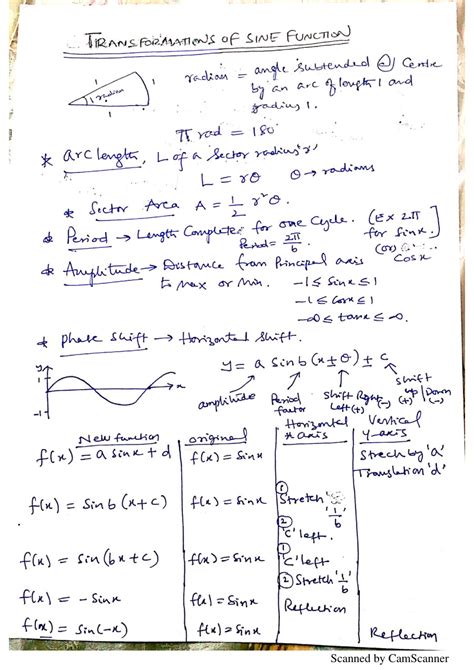 TRANSFORMATIONS OF SINE FUNCTION
1 1 radian 1
radian = angle subtended @ Centre
by an arc of length 1 and
radius 1.
π rad = 180°
* arc length, L of a Sector radius 'r'
L = rθ θ → radians
* Sector Area A = 1/2 r²θ.
* Period → Length Complete for one Cycle. (Ex 2π
Period = 2π/b. for Sinx.]
(or)
Cosx
* Amplitude → Distance from Principal axis
to Max or Min. -1 ≤ Sinx ≤ 1
-1 ≤ Cosx ≤ 1
-∞ ≤ tanx ≤ ∞.
* Phase Shift → Horizontal Shift.
y 1 -1 x
y = a Sin b (x ± θ) ± c
amplitude Period factor Shift Right (-) Left (+) Shift up (+) Down (-)
Horizontal Vertical
New function original x axis y-axis
f(x) = a Sinx + d f(x) = Sinx Strech by 'a'
Translation 'd'
f(x) = Sin b (x+c) f(x) = Sinx ① Stretch '1/b'
② 'C' left.
f(x) = Sin (bx + c) f(x) = Sinx ① 'C' left
② Stretch '1/b'
f(x) = - Sinx f(x) = Sinx Reflection
f(x) = Sin(-x) f(x) = Sinx Reflection
Scanned by CamScanner